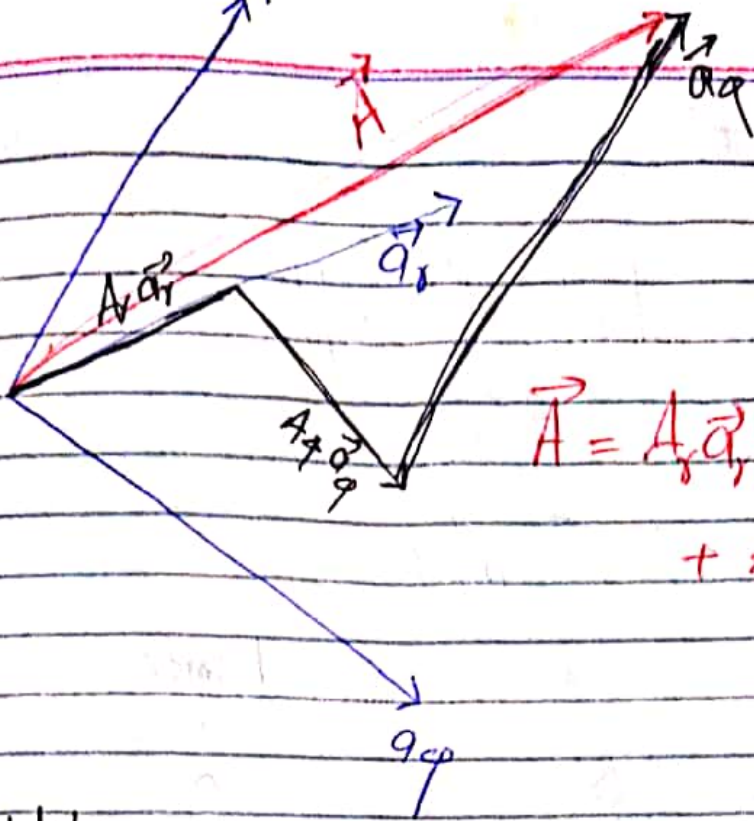 A⃗
a⃗φ
a⃗r
Ar a⃗r
Aφ a⃗φ
A⃗ = Ar a⃗r
+
aφ